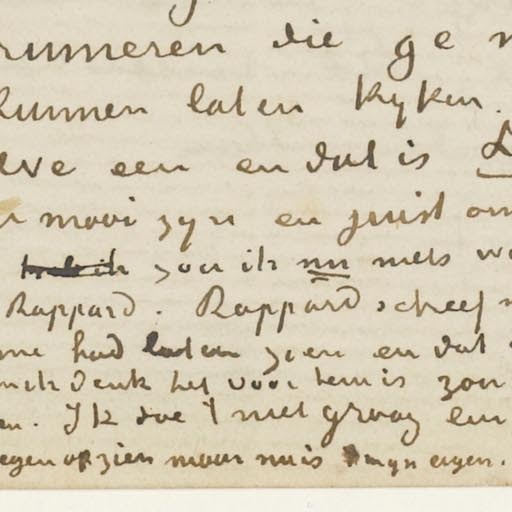 rumeren die ge
kunnen laten kyken.
lve een en dat is
mooi zyn en juist om
zou ik nu niets
Rappard. Rappard schreef
me had laten zien en dat
denk het voor hem is zou
en. Ik doe 't niet graag een
egen opzien maar nu is myn eigen.